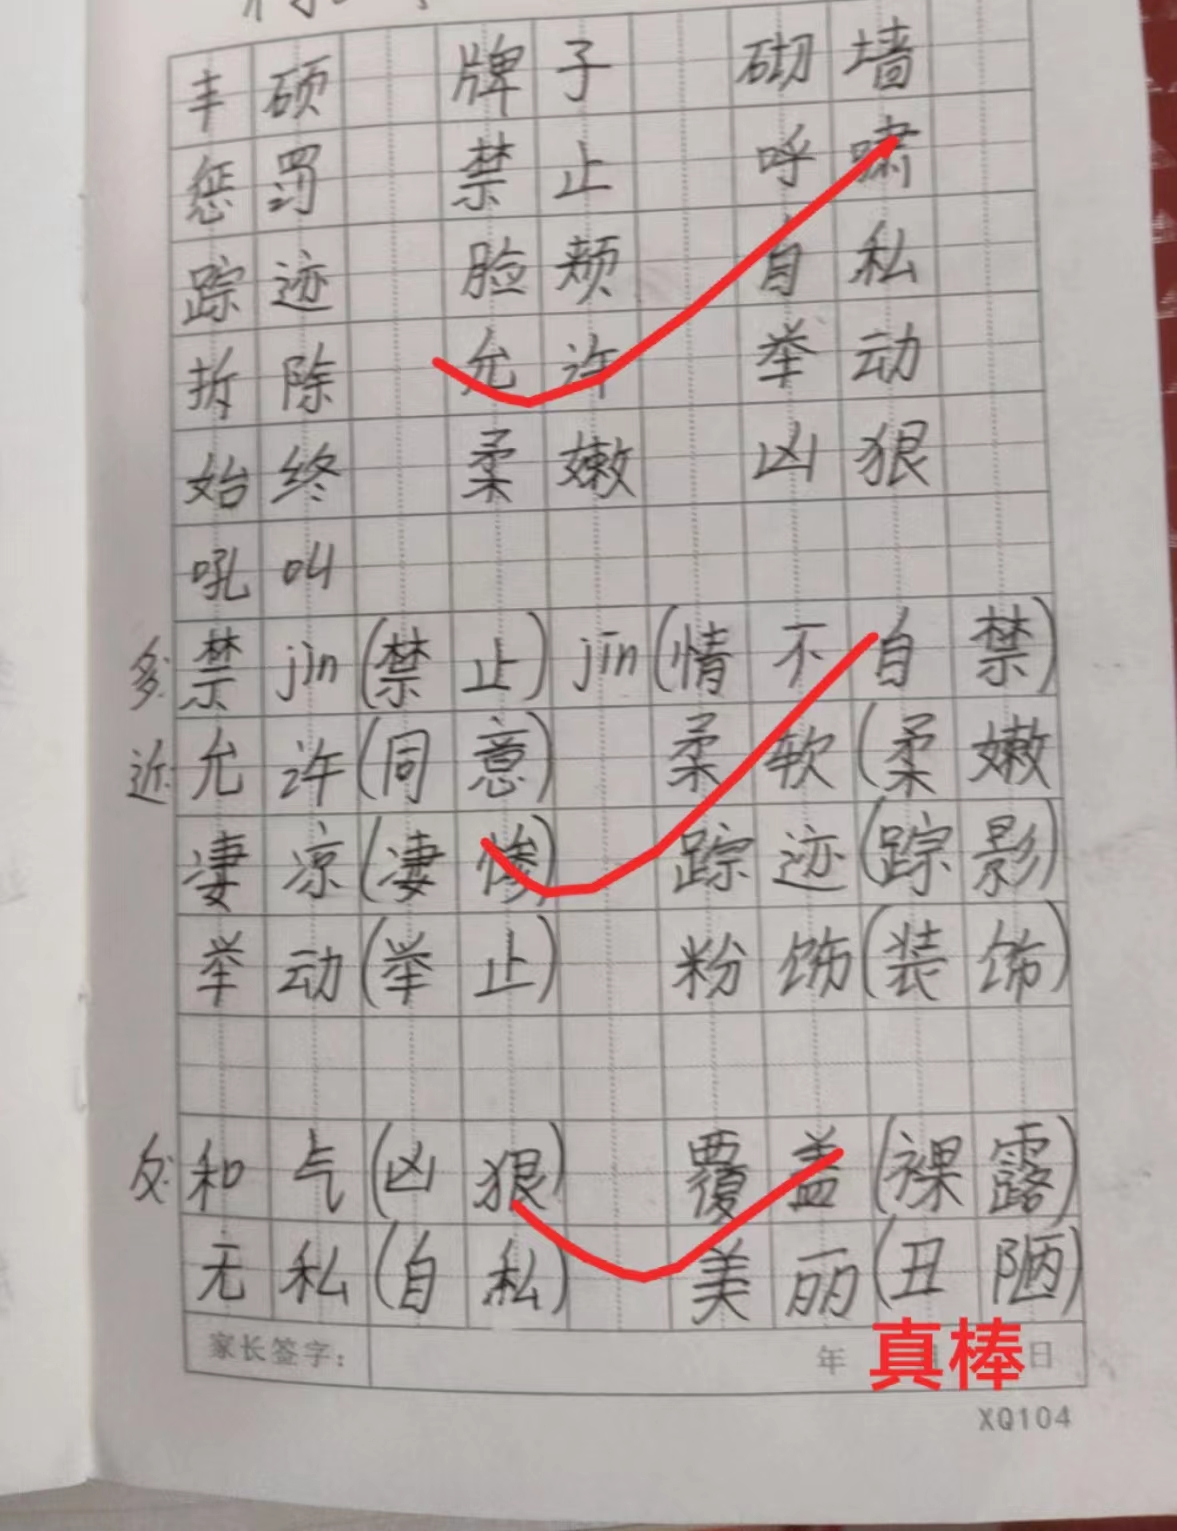 丰硕 牌子 砌墙
惩罚 禁止 呼啸
踪迹 脸颊 自私
拆除 允许 举动
始终 柔嫩 凶狠
吼叫
多: 禁 jìn (禁止) jīn (情不自禁)
近: 允许 (同意) 柔软 (柔嫩
凄凉 (凄惨) 踪迹 (踪影)
举动 (举止) 粉饰 (装饰)
反: 和气 (凶狠) 覆盖 (裸露)
无私 (自私) 美丽 (丑陋)
家长签字: 年 日
真棒
XQ104